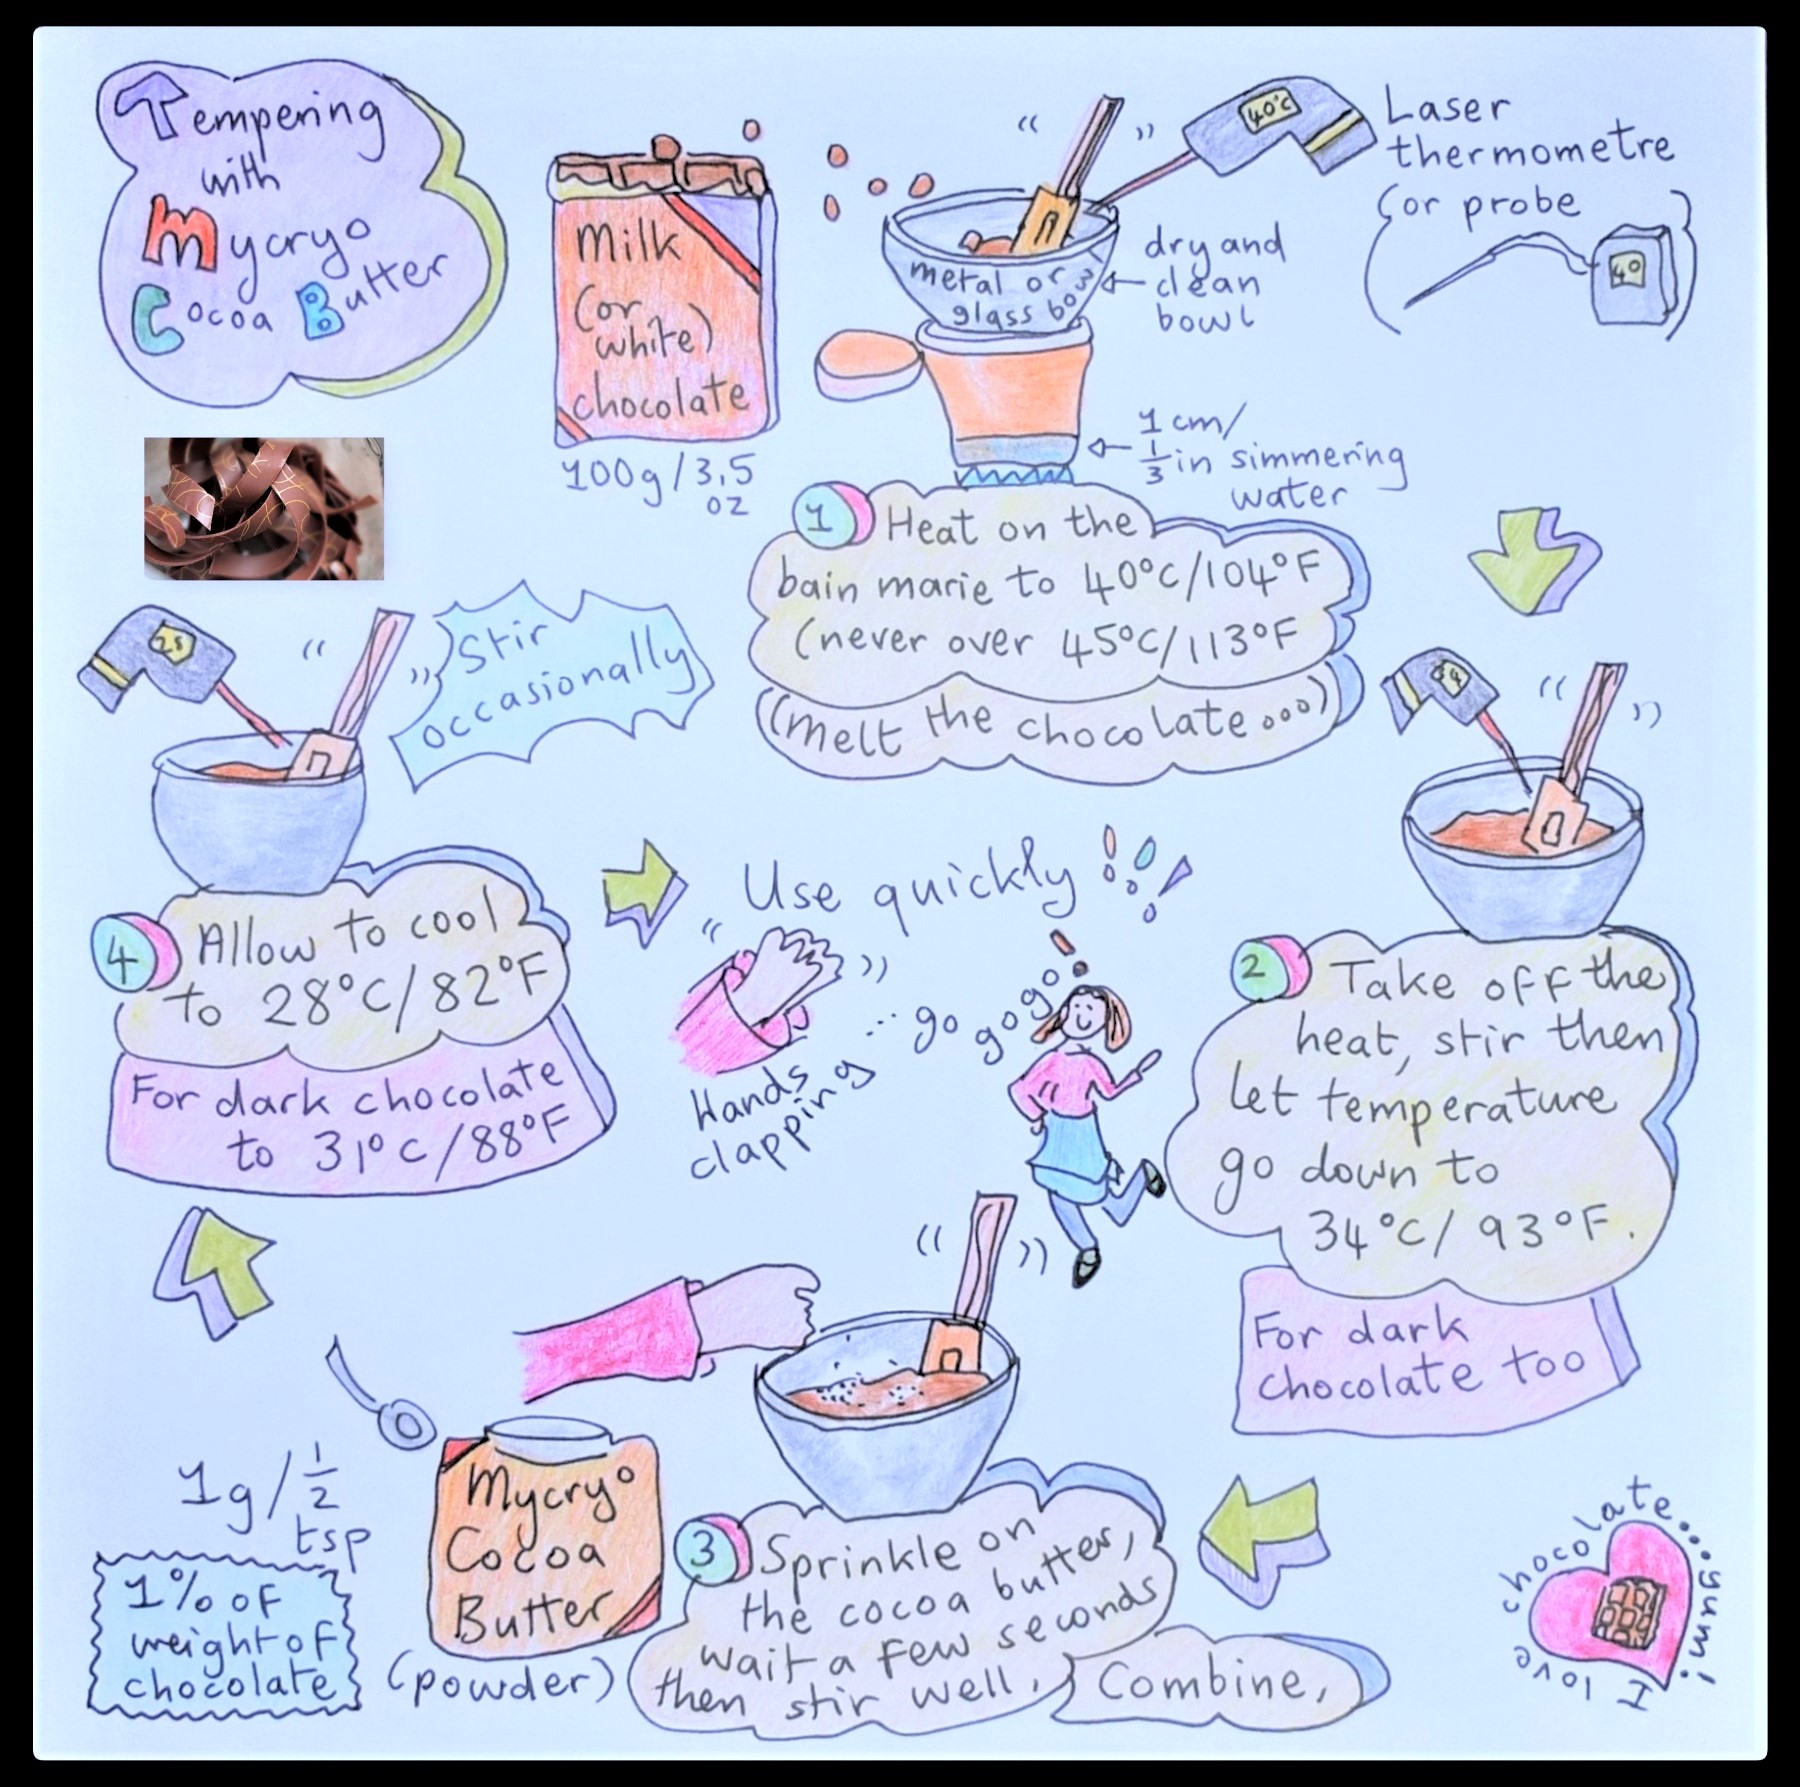 Tempering
with
Mycryo
Cocoa Butter
Milk
(or
white)
chocolate
100g/3,5
oz
40°C
Laser
thermometre
(or probe
40
)
metal or
glass bowl
dry and
clean
bowl
1 cm/
1/3 in simmering
water
1 Heat on the
bain marie to 40°C/104°F
(never over 45°C/113°F
(melt the chocolate...)
34
2 Take off the
heat, stir then
let temperature
go down to
34°C/93°F.
For dark
chocolate too
3 Sprinkle on
the cocoa butter,
wait a few seconds
then stir well.
Combine,
Mycryo
Cocoa
Butter
(powder)
1g/1/2
tsp
1% of
weight of
chocolate
28
Stir
occasionally
4 Allow to cool
to 28°C/82°F
For dark chocolate
to 31°C/88°F
Use quickly!!!
Hands
clapping
...go gogo
I love chocolate....yum!